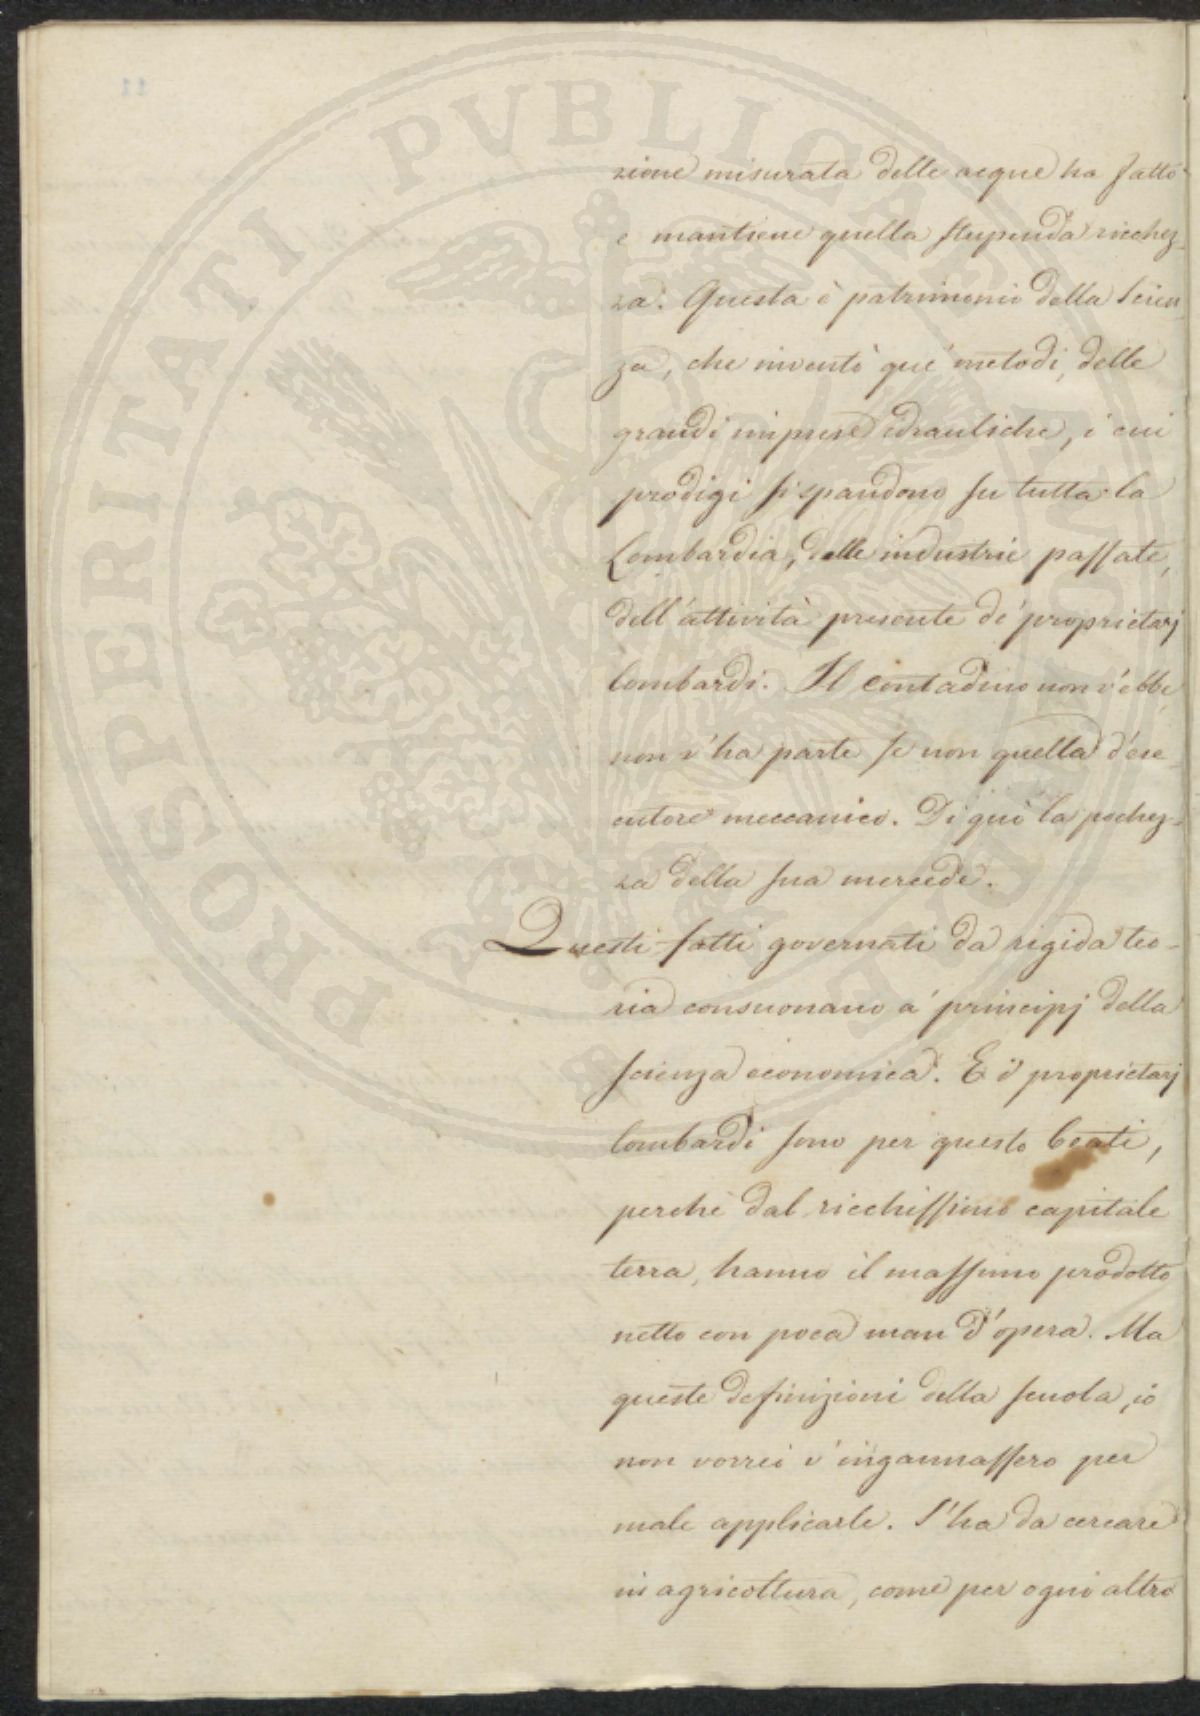 zione misurata delle acque ha fatto
e mantiene quella stupenda ricchez-
za. Questa è patrimonio della scien
za, che inventò que' metodi, delle
grandi imprese idrauliche, i cui
prodigi si spandono su tutta la
Lombardia, delle industrie passate,
dell'attività presente de' proprietarj
lombardi. Il contadino non v'ebbe,
non v'ha parte se non quella d'ese-
cutore meccanico. Di qui la pochez-
za della sua mercede.
Questi fatti governati da rigida teo-
ria consuonano a' principj della
scienza economica. E i proprietarj
lombardi sono per questo beati,
perchè dal ricchissimo capitale
terra, hanno il massimo prodotto
netto con poca man d'opera. Ma
queste definizioni della scuola, io
non vorrei v'ingannassero per
male applicarle. S'ha da cercare
in agricoltura, come per ogni altro
PROSPERITATI PVBLICAE AVGENDAE
11